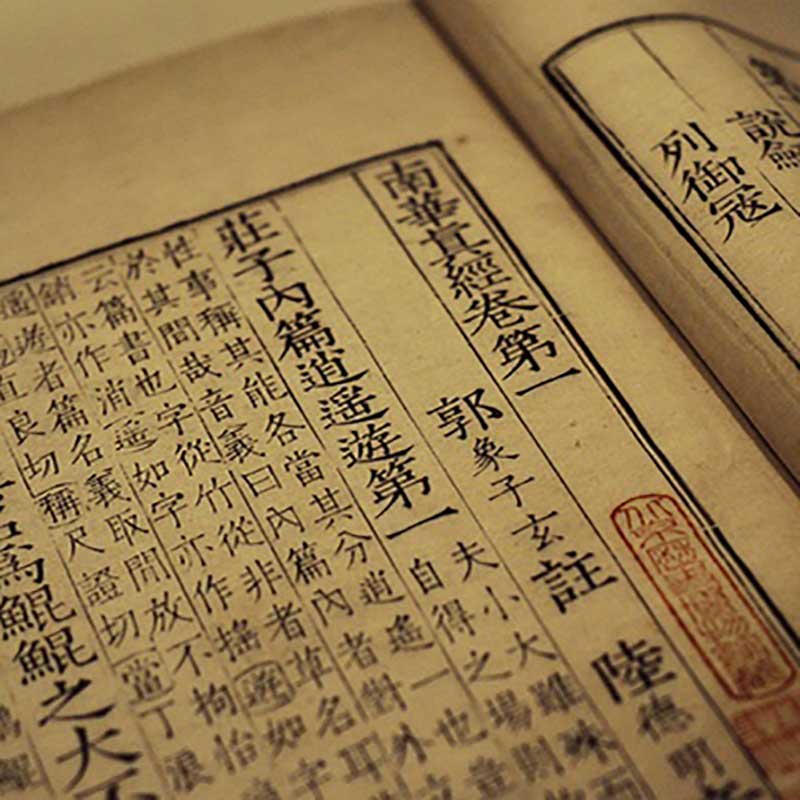 說劒
列御寇
南華真經卷第一
郭象子玄註 陸德明
莊子內篇逍遙遊第一 夫小大雖殊而
自得之場則
性事稱其能各當其分逍遙一也
於其間哉音義曰內篇內者對外
云篇書也字從竹從非者草名耳
銷亦作消遥如字亦作搖遊如字
遊者篇名義取閒放不拘怡
直良切稱尺證切當丁浪
為鯤鯤之大不